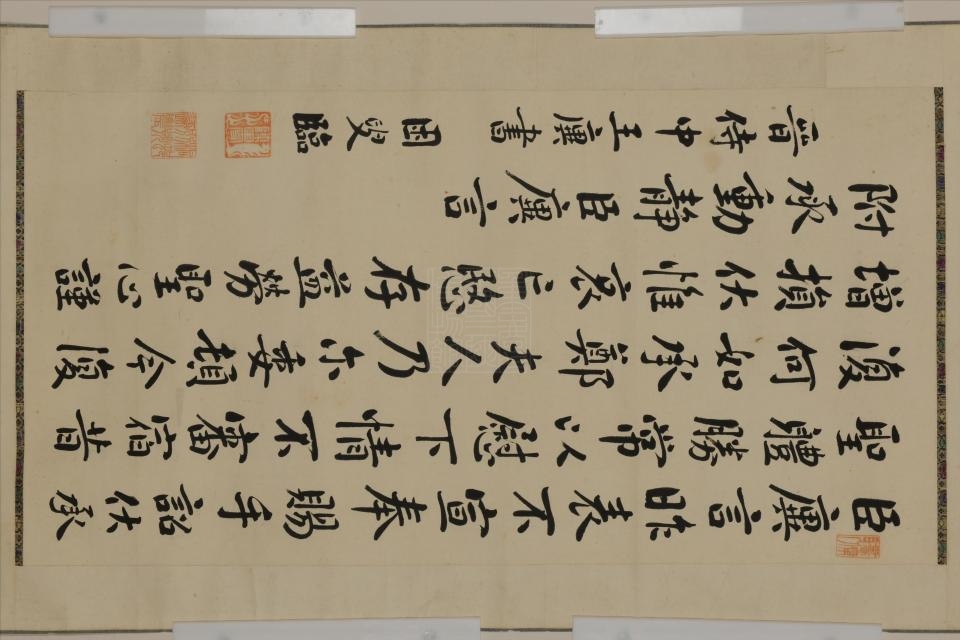 臣廙言昨表不宣奉賜手詔伏承
聖體勝常以慰下情不審宿昔
復何如承鄭夫人乃尔委頓今復
增損伏惟哀亡愍存益勞聖心謹
附承動靜臣廙言
晉侍中王廙書 叟臨